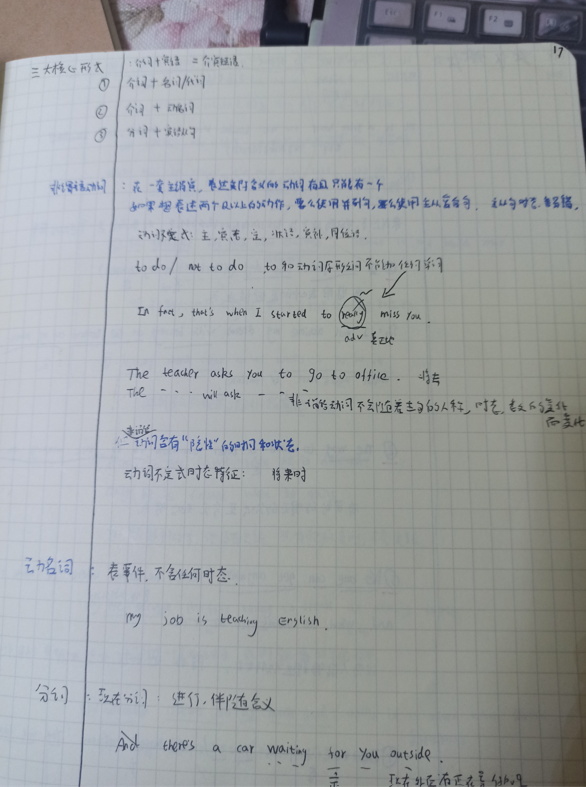 17
三大核心形式 : 介词+宾语 = 介宾短语
① 介词 + 名词/代词
② 介词 + 动名词
③ 介词 + 宾语从句
非谓语动词 : 在一套主谓宾, 表达实际含义的动词有且只能有一个
如果想表达两个及以上的动作, 要么使用并列句, 要么使用主从复合句.
动词不定式: 主, 宾, 表, 定, 状语, 宾补, 同位语.
to do / not to do to和动词原形之间不能加任何副词
In fact, that's when I started to really miss you.
adv
The teacher asks you to go to office. 将去
The - - - will ask - - -
非谓语动词不会随着主句的人称, 时态, 语态的变化而变化
动词含有"隐性"的时间和状态.
动词不定式时态特征: 将来时
动名词 : 表事件, 不含任何时态.
my job is teaching English.
分词 : 现在分词: 进行, 伴随含义
And there's a car waiting for you outside.